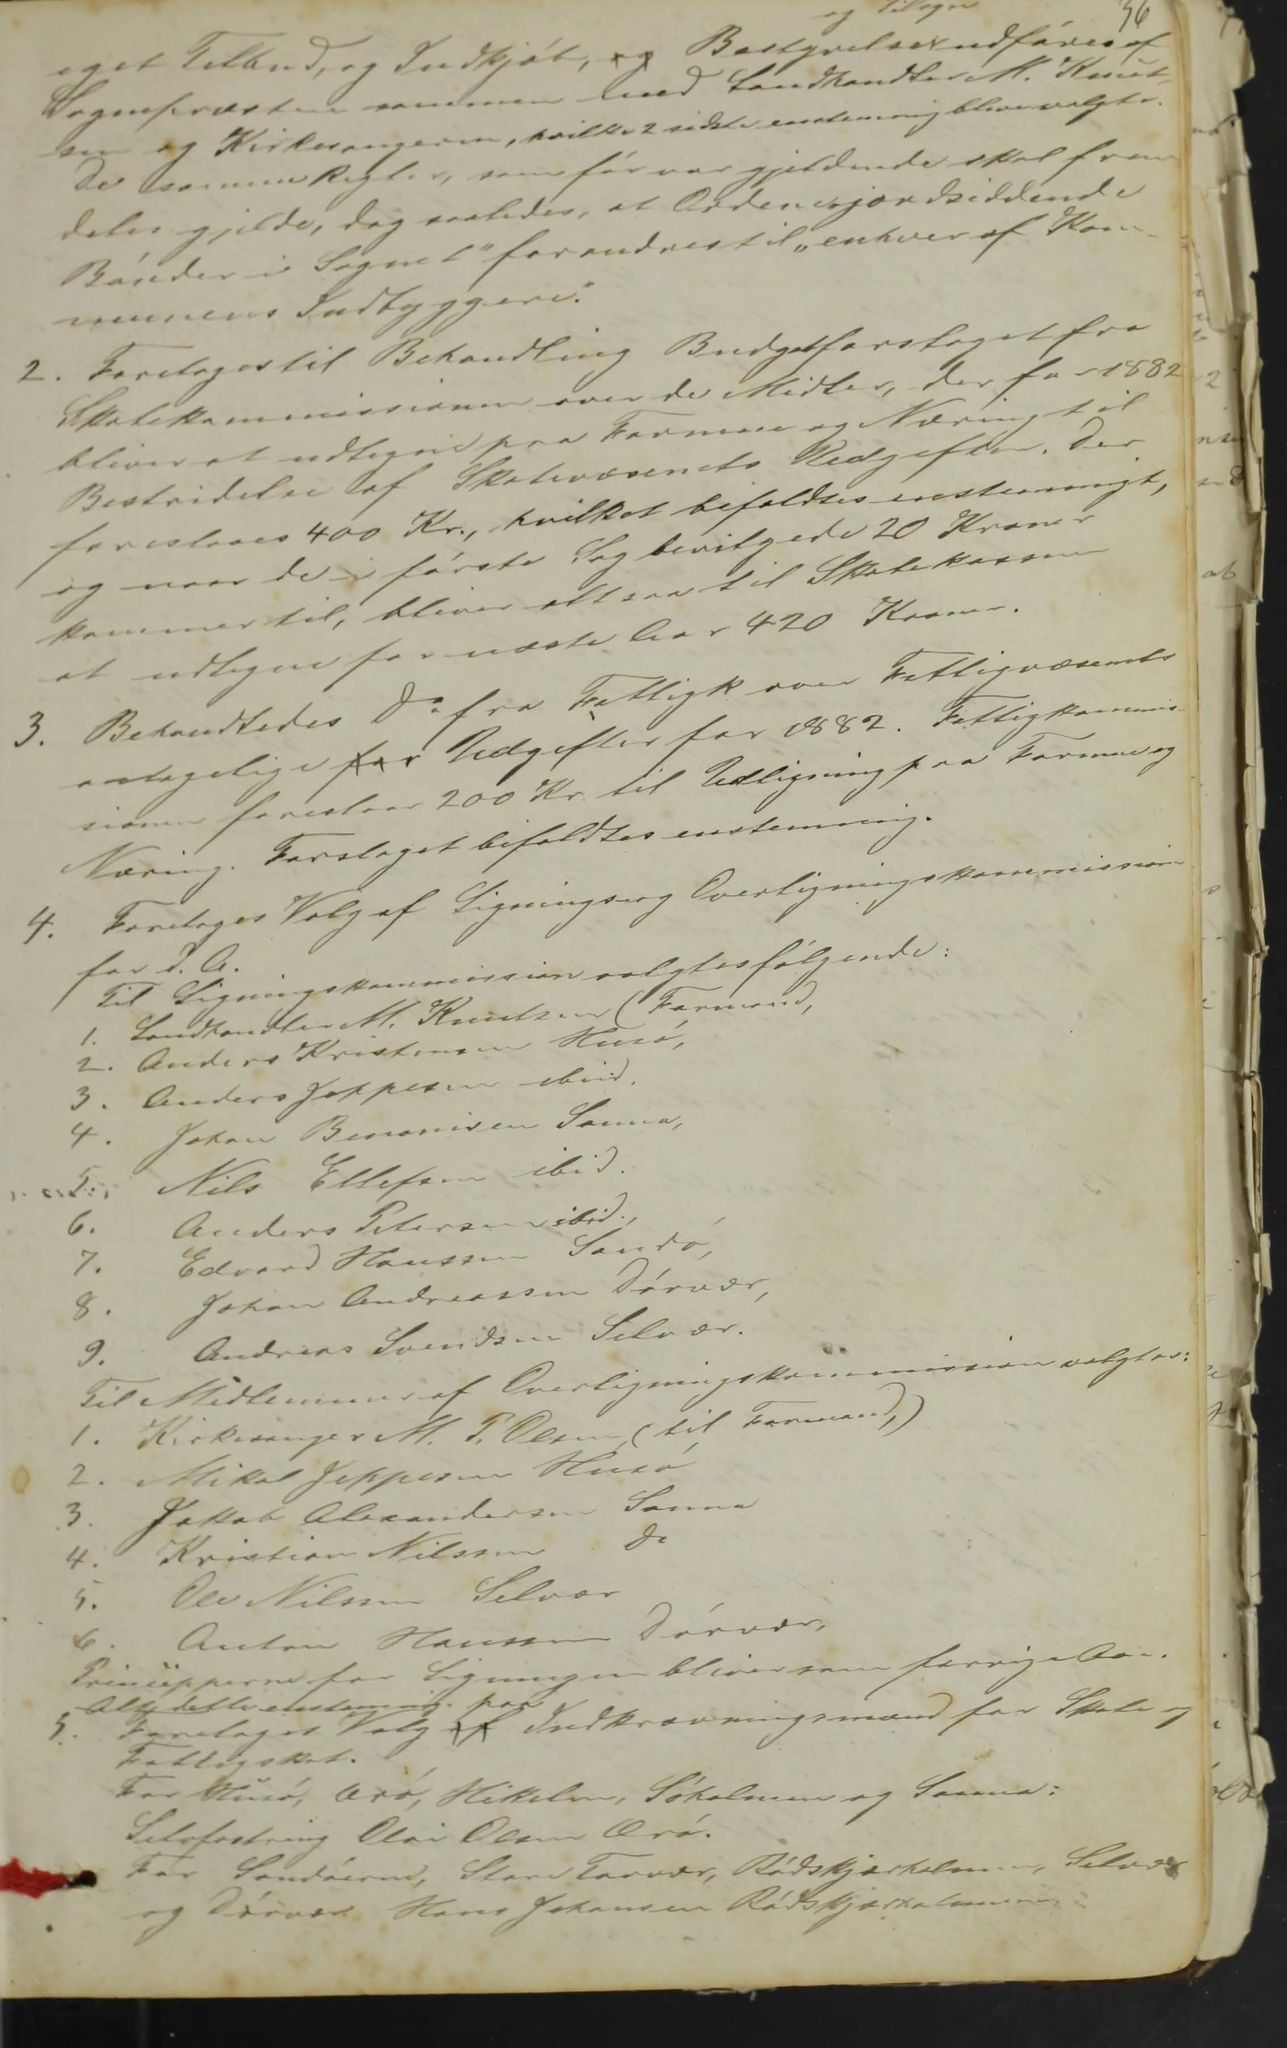 36
og Tilsyn
eget Tilbud, og Indkjøb, og Bestyrelse udføres af
Sognepræsten sammen med Landhandler M. Knut-
sen og Kirkesangeren, hvilke 2 sidste enstemmig bleve valgte.
De samme Regler, som før var gjeldende skal frem
deles gjelde, dog saaledes, at Ordene „jordsiddende
Bønder i Sognet" forandres til „enhver af Kom-
munens Indbyggere."
2. Foretoges til Behandling Budgetforslaget fra
Skolekommissionen over de Midler, der for 1882
bliver at udligne paa Formue og Næring til
Bestridelse af Skolevæsenets Udgifter. Der
foreslaaes 400 Kr., hvilket bifaldtes enstemmigt,
og naar de i første Sag bevilgede 20 Kroner
kommer til, bliver altsaa til Skolekassen
at udligne for næste Aar 420 Kroner.
3. Behandledes Do fra Fattigk over Fattigvæsenets
antagelige for Udgifter for 1882. Fattigkommis-
sionen foreslaar 200 Kr. til Udligning paa Formue og
Næring. Forslaget bifaldtes enstemmig.
4. Foretoges Valg af Lignings og Overligningskommission
for d. A.
Til Ligningskommission valgtes følgende:
1. Landhandler M. Knutsen (Formand,
2. Anders Kristensen Husø,
3. Anders Jeppesen ibid.
4. Johan Benonisen Sanna,
5. Nils Ellefsen ibid.
6. Anders Petersen ibid.,
7. Edvard Hanssen Sandø,
8. Johan Andreassen Dørvær,
9. Andreas Svendsen Selvær.
Til Medlemmer af Overligningskommission valgtes:
1. Kirkesanger M. P. Olsen, (til Formand,)
2. Mikal Jeppesen Husø
3. Jakob Alexandersen Sanna
4. Kristian Nilssen do
5. Ole Nilssen Selvær
6. Anton Hanssen Dørvær,
Principperne for Ligningen bliver som forrige Aar.
Alt dette enstemmig. paa
5. Foretoges Valg af Indkrævningsmænd for Skole og
Fattigskat.
For Husø, Orø, Hikelen, Søholmen og Sanna:
Selvfostring Olai Olsen Orø.
For Sandøerne, Store Tarvær, Rødskjærholmen, Selvær
og Dørvær Hans Johansen Rødskjærholmen